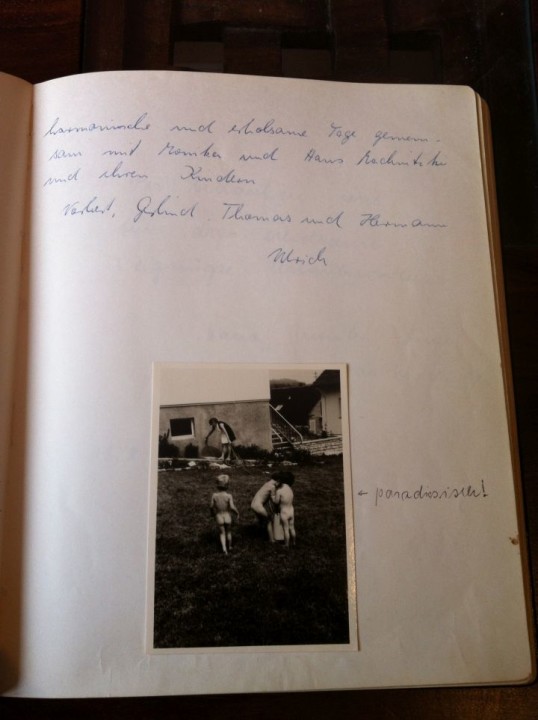 harmonische und erholsame Tage gemein-
sam mit Monika und Hans
und ihren Kindern
Norbert, Gerlind, Thomas und Hermann
Ulrich
← paradiesisch!